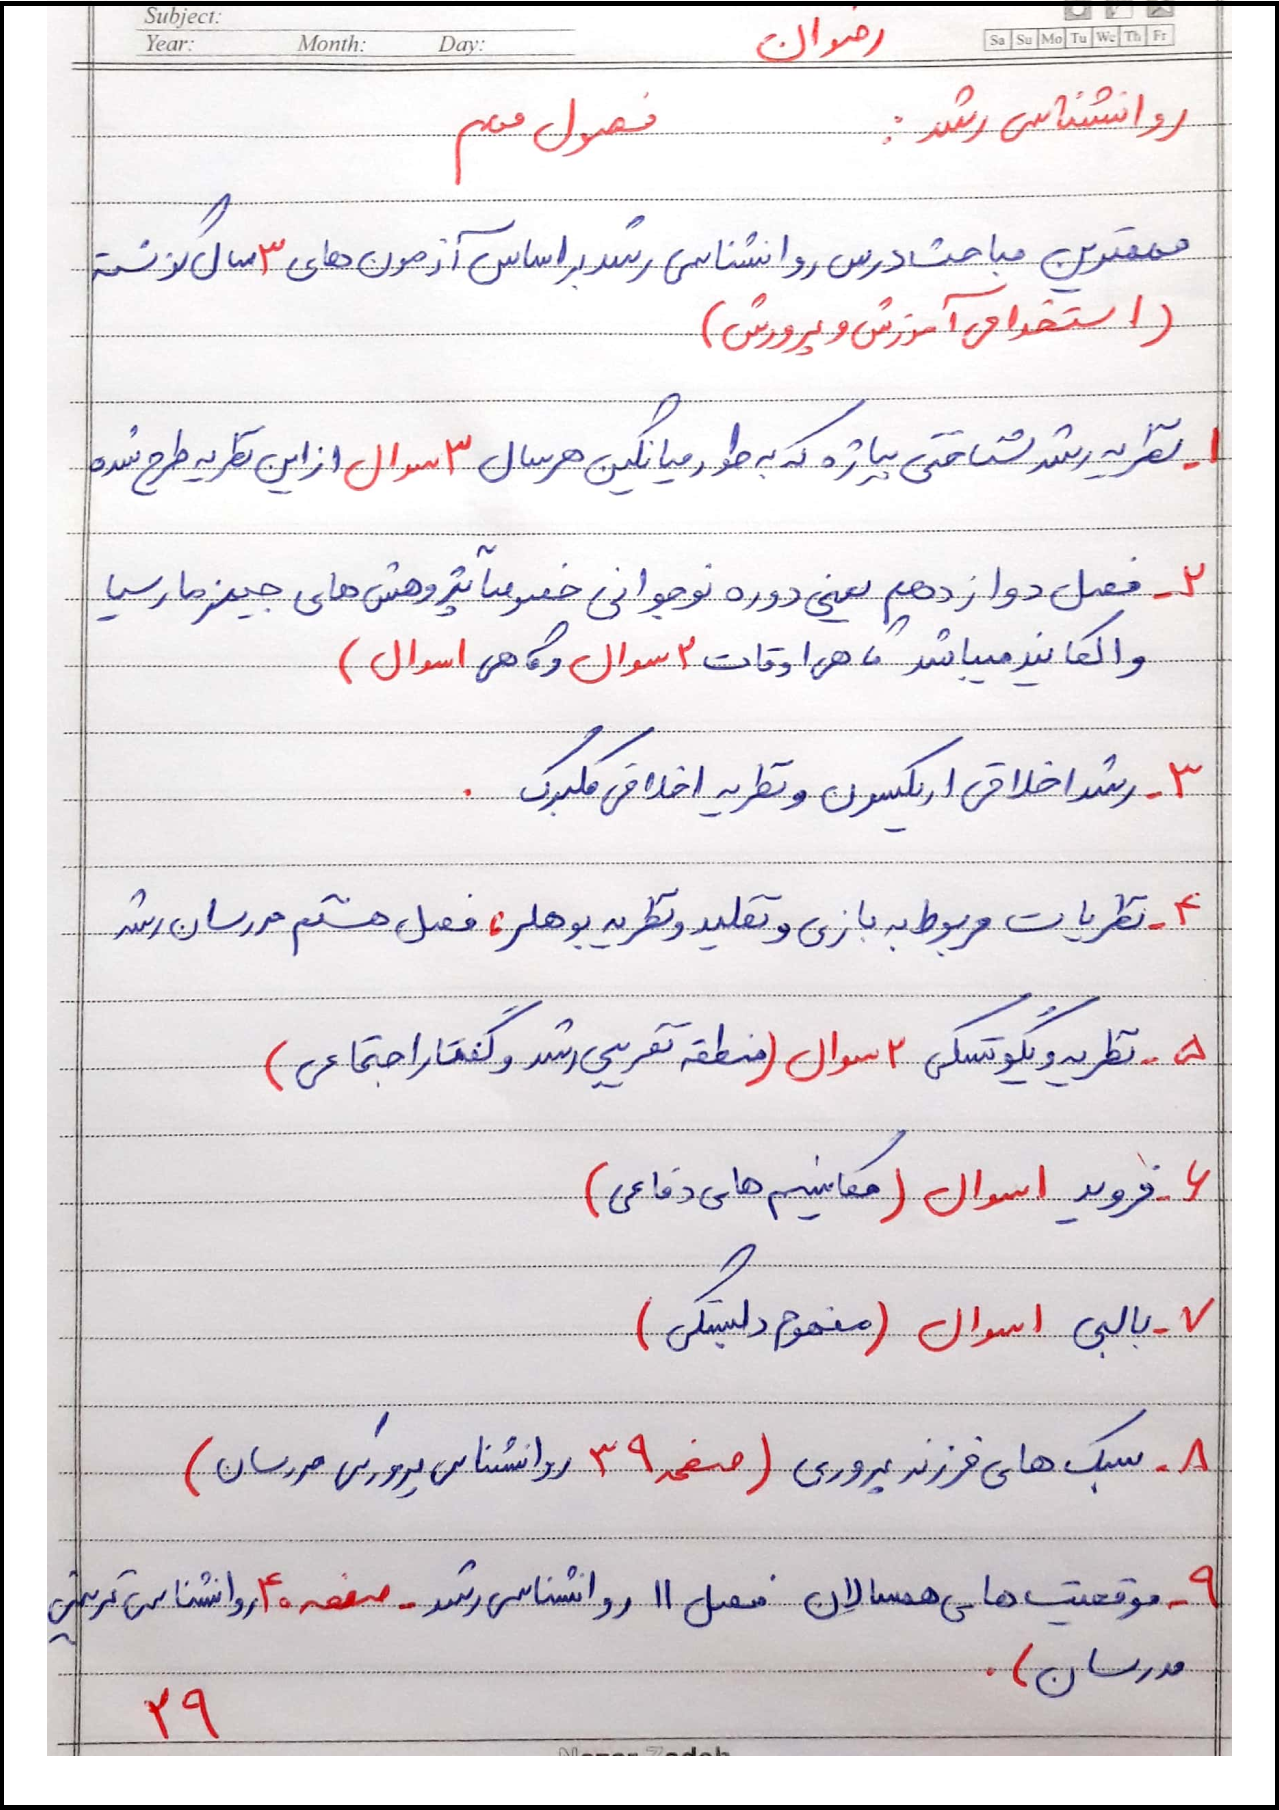 Subject:
Year: Month: Day:
رضوان
Sa Su Mo Tu We Th Fr
روانشناسی رشد : فصول مهم
مهمترین مباحث درس روانشناسی رشد براساس آزمون های ۳ سال گذشته
(استخدامی آموزش و پرورش)
۱- نظریه رشد شناختی پیاژه که به طور میانگین هرسال ۳ سوال از این نظریه طرح شده
۲- فصل دوازدهم یعنی دوره نوجوانی خصوصاً پژوهش های جیمز مارسیا
و الکایند میباشد گاهی اوقات ۲ سوال و گاهی ۱ سوال )
۳- رشد اخلاقی اریکسون و نظریه اخلاقی کلبرگ .
۴- نظریات مربوط به بازی و تقلید و نظریه بوهلر ، فصل هشتم مدرسان رشد
۵- نظریه ویگوتسکی ۲ سوال (منطقه تقریبی رشد و گفتار اجتماعی )
۶- فروید ۱ سوال ( مکانیسم های دفاعی )
۷- بالبی ۱ سوال (مفهوم دلبستگی )
۸- سبک های فرزند پروری (صفحه ۳۹ روانشناسی پرورشی مدرسان )
۹- موقعیت های همسالان فصل ۱۱ روانشناسی رشد - صفحه ۴۰ روانشناسی تربیتی
مدرسان ) .
۲۹